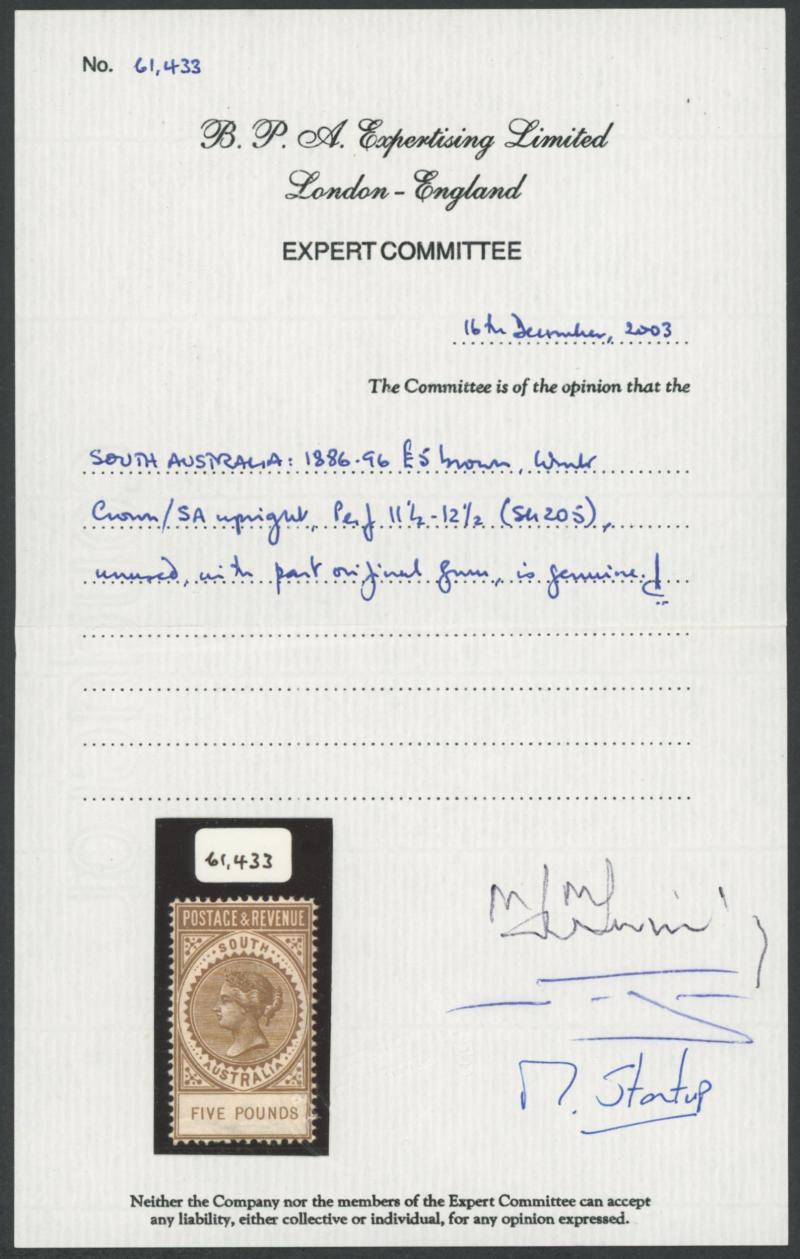 No. 61,433
B. P. A. Expertising Limited
London - England
EXPERT COMMITTEE
16th December, 2003
The Committee is of the opinion that the
SOUTH AUSTRALIA: 1886-96 £5 brown, Wmk
Crown/SA upright, Perf 11½-12½ (SG205),
unused, with part original gum, is genuine.
61,433
POSTAGE & REVENUE
SOUTH
AUSTRALIA
FIVE POUNDS
M. Startup
Neither the Company nor the members of the Expert Committee can accept
any liability, either collective or individual, for any opinion expressed.